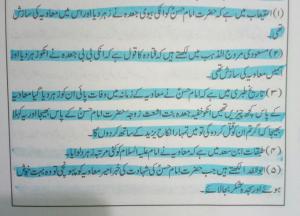 (۱) استیعاب میں ہے کہ حضرت امام حسنؑ کو انکی بیوی جعدہ نے زہر دیا اور اس میں معاویہ کی سازش
تھی۔
(۲) مسعودی مروج الذہب میں لکھتے ہیں کہ قتادہ کا قول ہے کہ انکی بی بی جعدہ نے انکو زہر دیا اور
اسمیں معاویہ کی سازش تھی۔
(۳) تاریخ طبری میں ہے کہ امام حسنؑ نے معاویہ کے زمانہ میں وفات پائی ان کو زہر دیا گیا معاویہ
کے پاس کچھ چیزیں تھیں انکو خفیہ جعدہ بنت اشعث زوجہ حضرت امام حسنؑ کے پاس بھیجا اور یہ کہلا
بھیجا کہ اگر تم ان کو قتل کر دو گی تو میں تمہارا نکاح یزید کے ساتھ کر دوں گا۔
(۴) طبقات ابن سعد میں ہے کہ معاویہ نے امام علیہ السلام کو کئی مرتبہ زہر دلوایا۔
(۵) ابوالفداء لکھتے ہیں جب حضرت امام حسنؑ کی شہادت کی خبر امیر معاویہ کو پہونچی تو وہ بہت خوش
ہوئے اور سجدہ شکر بجا لائے۔